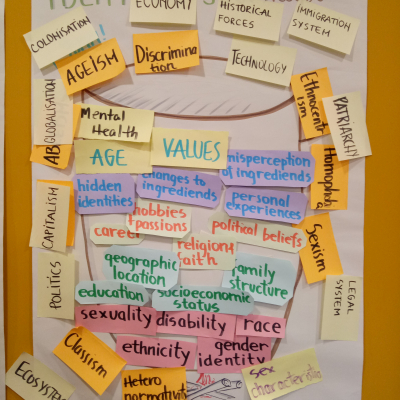 ECONOMY
HISTORICAL
FORCES
IMMIGRATION
SYSTEM
COLONISATION
AGEISM
Discrimina
tion
TECHNOLOGY
GLOBALISATION
AB
Ethnocentr
ism
PATRIARCHY
Mental
Health
AGE
VALUES
misperception
of ingrediends
Homophob
a
hidden
identities
changes to
ingrediends
personal
experiences
CAPITALISM
hobbies
+passions
career
political beliefs
religion
faith
Sexism
geographic
location
family
structure
POLITICS
education
socioeconomic
status
LEGAL
SYSTEM
sexuality
disability
race
Classism
ethnicity
gender
identity
Ecosystem
Hetero
normativity
sex
characteristic